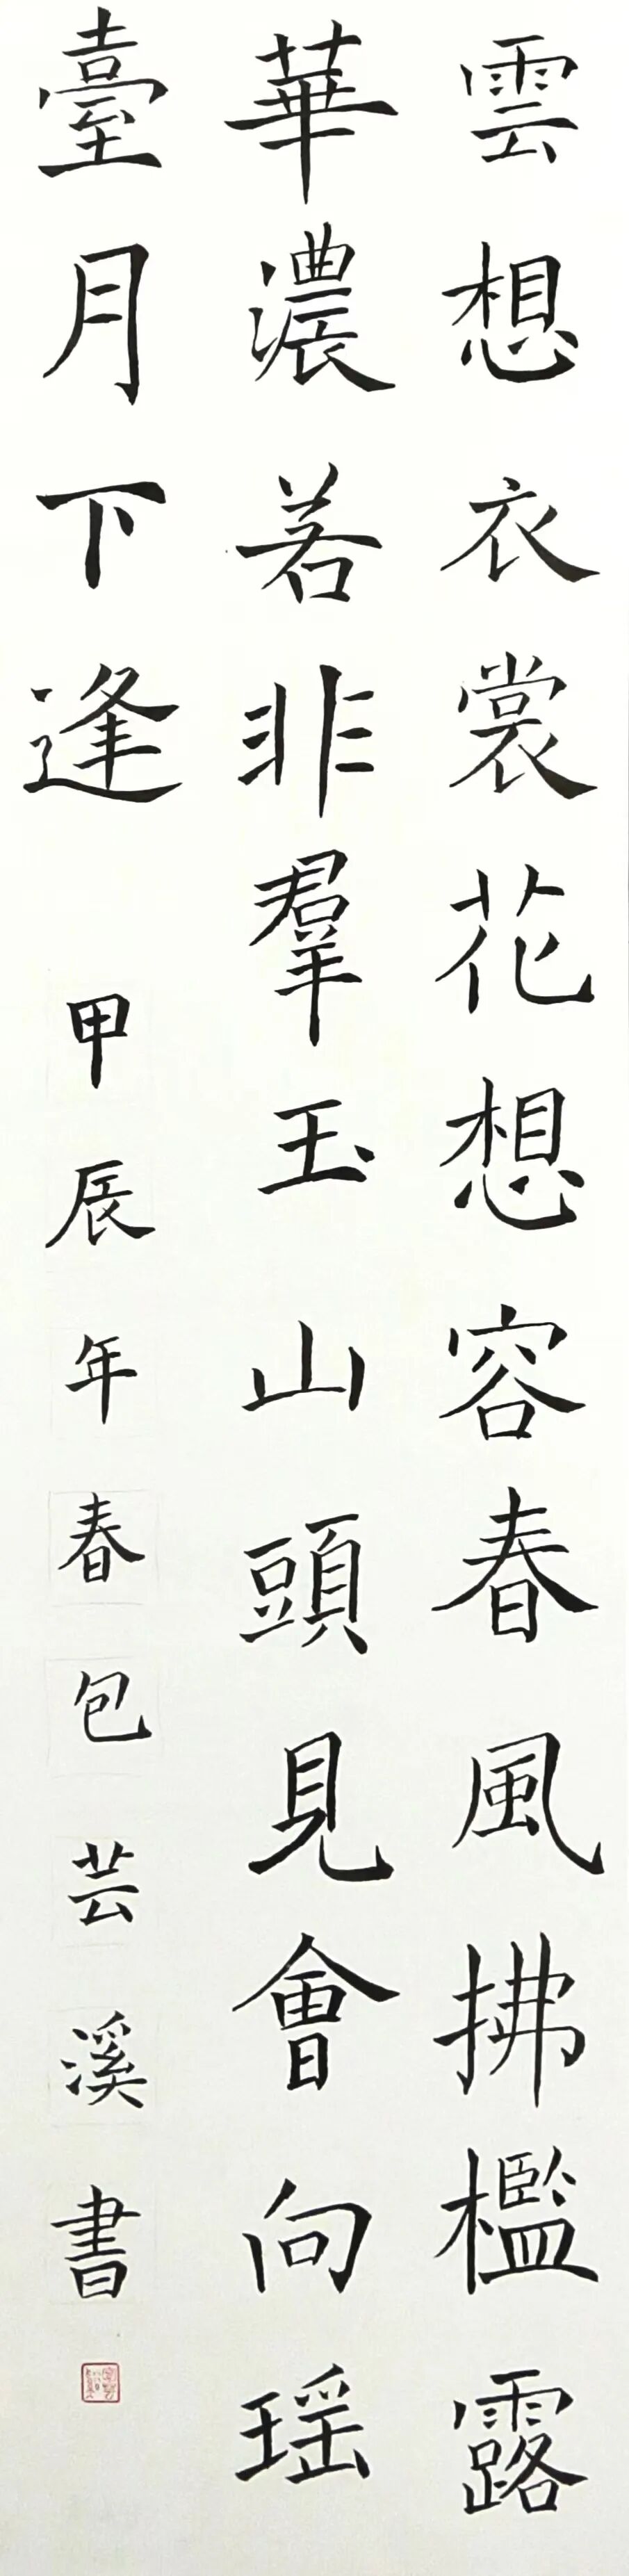 雲想衣裳花想容春風拂檻露
華濃若非羣玉山頭見會向瑶
臺月下逢 甲辰年春包芸溪書